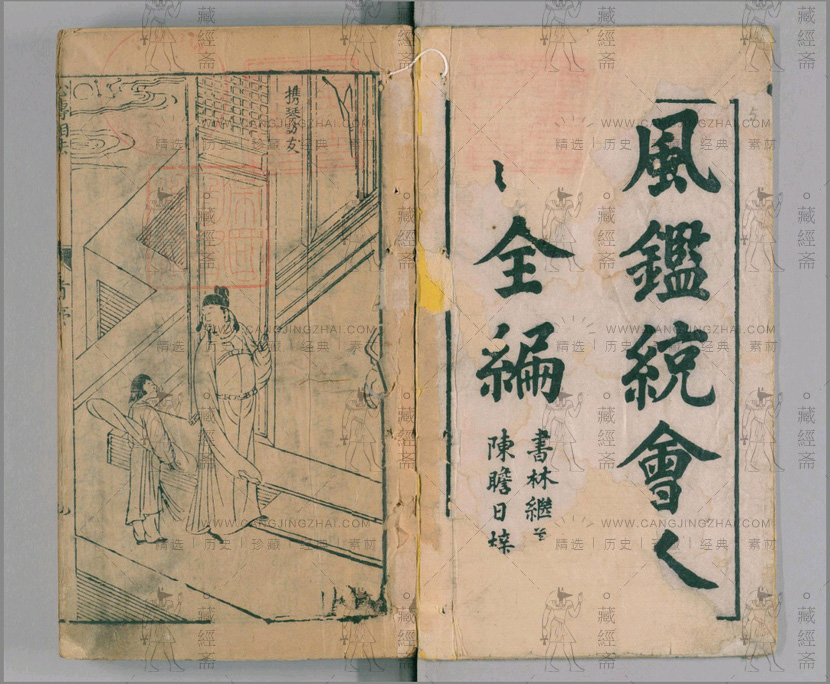 風鑑統會人
全編
書林繼
陳瞻日梓
携琴訪友
WWW.CANGJINGZHAI.COM
精选 | 历史 | 珍藏 | 经典 | 素材
藏經斋